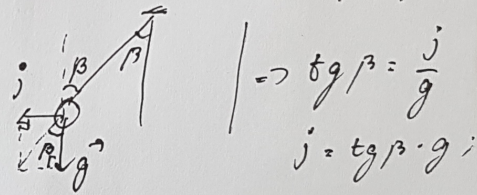 β
β
j
β
g
=> tg β = j/g
j = tg β · g ;